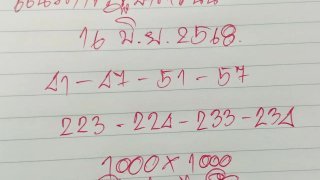 16 มิ.ย. 2568.
41 - 47 - 51 - 57
223 - 224 - 233 - 234
1000 x 1000